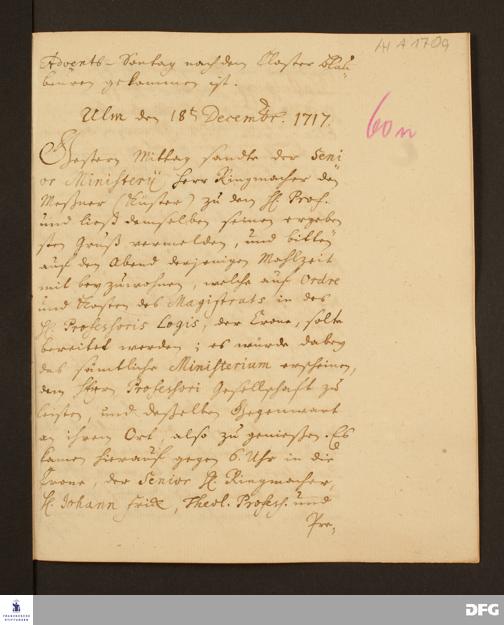 H A 170g
Advents-Sontag nach dem Closter Blau-
beuren gekommen ist.
Ulm den 18t Decembr. 1717.
60n
Gestern Mittag sandte der Seni
or Ministerij Herr Ringmacher den
Meßner (Küster) zu dem H. Prof.
und ließ demselben seinen ergeben
sten Gruß vermelden, und bitten
auf den Abend derjenigen Mahlzeit
mit bey zuwohnen, welche auf Ordre
und Kosten des Magistrats in des
H. Professoris Logis, der Crone, solte
bereitet werden; es würde dabey
das sämtliche Ministerium erscheinen,
dem Herrn Professori Gesellschafft zu
leisten, und deßelben Gegenwart
an ihrem Ort, also zu genießen. Es
kamen hierauf gegen 6. Uhr in die
Crone, der Senior H. Ringmacher,
H. Johann Frick, Theol. Profess. und
Pre,
FRANCKESCHE
STIFTUNGEN
DFG